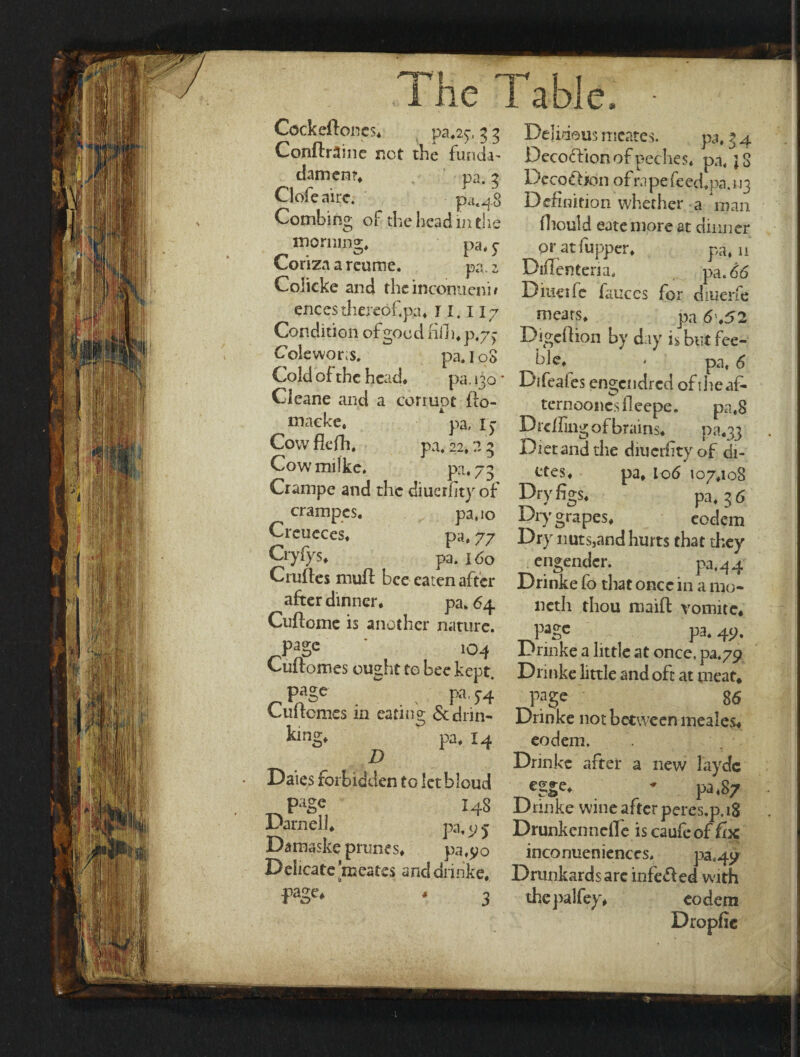 The Table.
Cockeſtones. pa.25. 33
Conſtraine not the funda-
dament. pa. 3
Cloſe aire. pa.48
Combing of the head in the
morning. pa. 5
Coriza a reume. pa. 2
Colicke and the inconueni-
ences thereof.pa. 11. 117
Condition of good fiſh. p.75
Coleworts. pa. 108
Cold of the head. pa. 130
Cleane and a corrupt ſto-
macke. pa. 15
Cow fleſh. pa. 22. 23
Cow milke. pa. 73
Crampe and the diuerſity of
crampes. pa.10
Creueces. pa. 77
Cryſys. pa. 160
Cruſtes muſt bee eaten after
after dinner. pa. 64
Cuſtome is another nature.
page 104
Cuſtomes ought to bee kept.
page pa. 54
Cuſtomes in eating & drin-
king. pa. 14
D
Daies forbidden to let bloud
page 148
Darnell. pa.95
Damaske prunes. pa.90
Delicate meates and drinke.
page. 3
Delitious meates. pa. 34
Decoction of peches. pa. 18
Decoction of rape ſeed.pa.113
Definition whether a man
ſhould eate more at dinner
or at ſupper. pa. 11
Diſſenteria. pa. 66
Diuerſe ſauces for diuerſe
meats. pa 61.52
Digeſtion by day is but fee-
ble. pa. 6
Diſeaſes engendred of the af-
ternoones ſleepe. pa.8
Dreſſing of brains. pa.33
Diet and the diuerſity of di-
etes. pa. 106 107.108
Dry figs. pa. 36
Dry grapes. eodem
Dry nuts,and hurts that they
engender. pa.44
Drinke ſo that once in a mo-
neth thou maiſt vomite.
page pa. 49.
Drinke a little at once. pa.79
Drinke little and oft at meat.
page 86
Drinke not between meales.
eodem.
Drinke after a new layde
egge. pa.87
Drinke wine after peres.p.18
Drunkenneſſe is cauſe of ſix
inconueniences. pa.49
Drunkards are infected with
the palſey. eodem
Dropſie